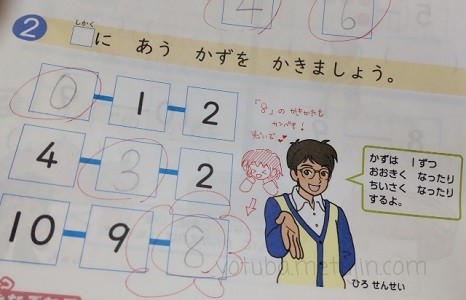 4 6
2 □に あう かずを かきましょう。
しかく
0 1 2
「8」の かきかたも
カンペキ！
4 3 2
かずは 1ずつ
おおきく なったり
ちいさく なったり
するよ。
10 9 8
yotubametalin.com
ひろ せんせい